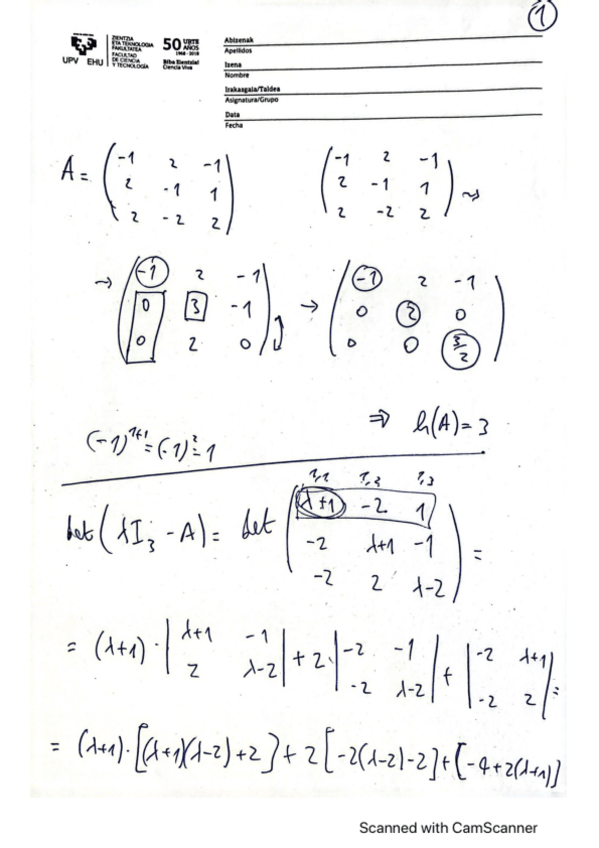 1
ZIENTZIA
ETA TEKNOLOGIA
FAKULTATEA
FACULTAD
DE CIENCIA
Y TECNOLOGÍA
UPV EHU
50 URTE
AÑOS
1968 - 2018
Biho Elentzia!
Ciencia Viva
Abizenak
Apellidos
Izena
Nombre
Irakasgaia/Taldea
Asignatura/Grupo
Data
Fecha
A = ( -1 2 -1 ; 2 -1 1 ; 2 -2 2 ) ( -1 2 -1 ; 2 -1 1 ; 2 -2 2 ) →
→ ( -1 2 -1 ; 0 3 -1 ; 0 2 0 ) → ( -1 2 -1 ; 0 2 0 ; 0 0 3/2 )
⇒ h(A) = 3
(-1)^1+1 = (-1)^2 = 1
1,1 1,2 1,3
det(λI₃ - A) = det ( λ+1 -2 1 ; -2 λ+1 -1 ; -2 2 λ-2 ) =
= (λ+1) · | λ+1 -1 ; 2 λ-2 | + 2 · | -2 -1 ; -2 λ-2 | + | -2 λ+1 ; -2 2 | =
= (λ+1) · [(λ+1)(λ-2)+2] + 2[-2(λ-2)-2] + [-4+2(λ+1)]
Scanned with CamScanner